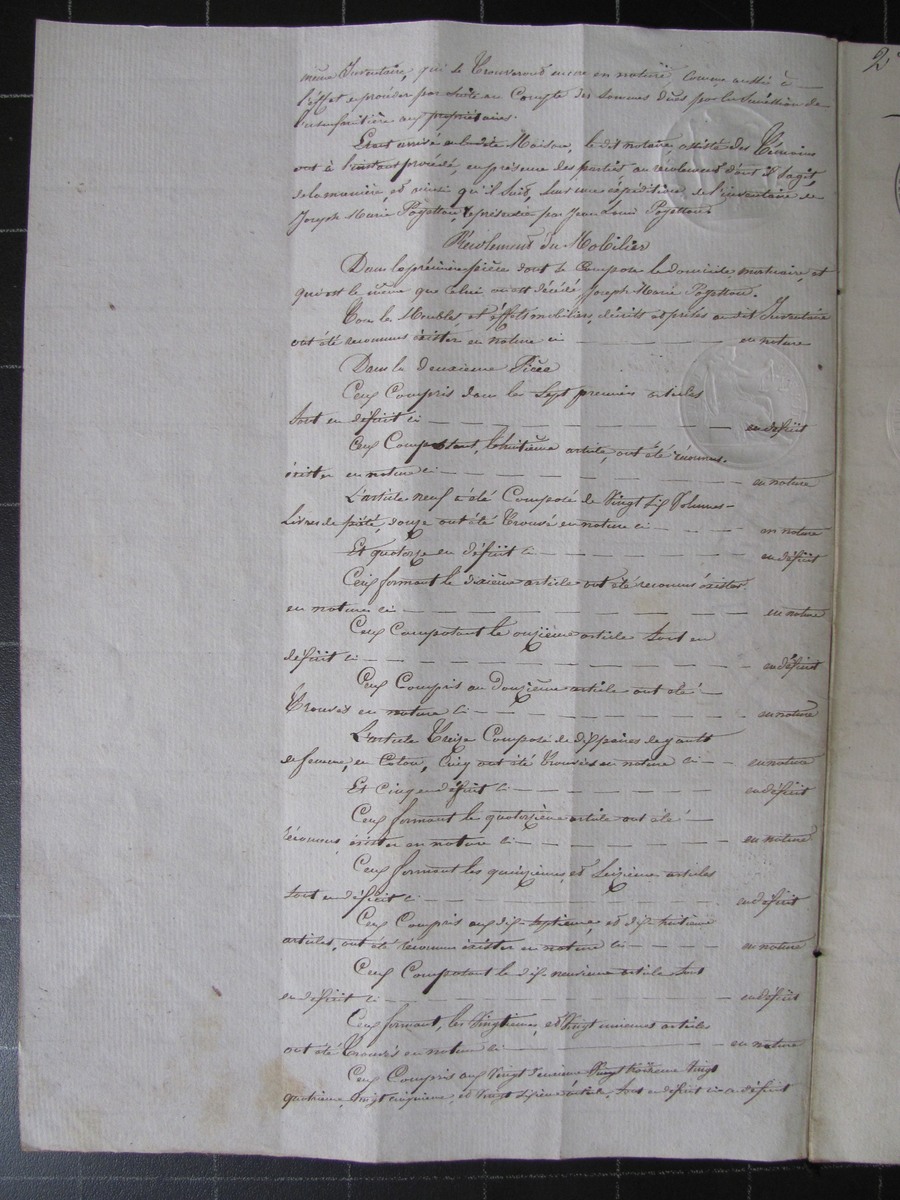 même Inventaire, qui se trouveront encore en nature, comme aussi à
l'effet e procéder par suite au Compte des sommes dues par la succession de
l'usufruitière aux propriétaires.
Etant arrivé au dite Maison, le dit notaire, assisté des témoins
ont à l'instant procédé, en présence des parties au récolement dont il s'agit,
de la manière, et ainsi qu'il suit, sur une éxpédition de l'inventaire de
Joseph Marie Pogettoux, représentée par Jean Louis Pogettoux
Récolement du Mobilier
Dans la première pièce dont se Compose le domicile mortuaire, et
qui est le même que celui où est décédé Joseph Marie Pogettoux.
Tous les Meubles et éffets mobiliers, décrits et prisés au dit Inventaire
ont été reconnus éxister en nature ci — en nature
Dans la deuxième Pièce
Ceux Compris dans les Sept premiers articles
sont en déficit ci — en déficit
Ceux Composant, l'huitième article, ont été reconnus
éxister en nature ci — en nature
L'article neuf a été Composé de Vingt six Volumes
Livres de piété, douze ont été trouvé en nature ci — en nature
Et quatorze en déficit ci — en déficit
Ceux formant le dixième article ont été reconnus éxister
en nature ci — en nature
Ceux Composant le onzième article sont en
déficit ci — en déficit
Ceux Compris au Douzième article ont été
trouvés en nature ci — en nature
L'article Treize Composé de dix paires de gants
de femme, en Coton, Cinq ont été trouvés en nature ci — en nature
Et Cinq en déficit ci — en déficit
Ceux formant le quatorzième article ont été
reconnus éxister en nature ci — en nature
Ceux formant les quinzième, et Seizième articles
sont en déficit ci — en déficit
Ceux Compris aux dix-septième, et dix-huitième
articles, ont été reconnus éxister en nature ci — en nature
Ceux Composant le dix-neuvième article sont
en déficit ci — en déficit
Ceux formant, les Vingtième, et Vingt unième articles
ont été trouvés en nature ci — en nature
Ceux Compris aux Vingt deuxième Vingt troisième Vingt
quatrième, Vingt cinquième, et Vingt sixième article, sont en déficit ci en déficit
2